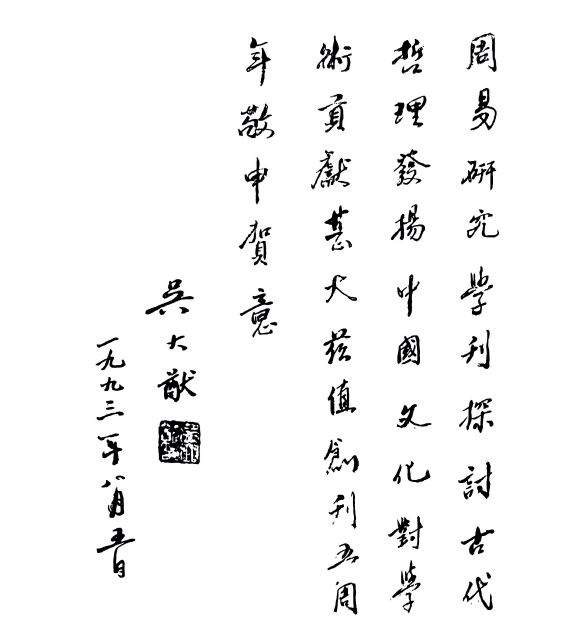 周易研究學刊探討古代
哲理發揚中國文化對學
術貢獻甚大茲值創刊五周
年敬申賀意
吳大猷
一九九三年八月五日